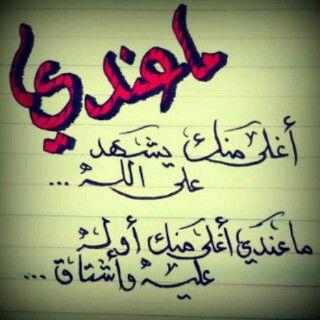 ماعندي
أغلى منك يشهد
على الله ...
ما عندي أغلى منك أوله
عليه وأشتاق ...